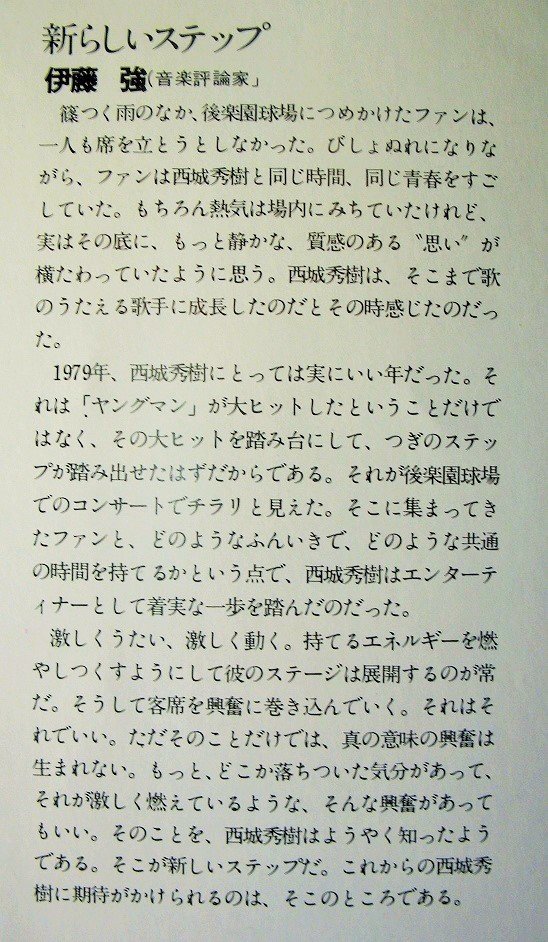 新らしいステップ
伊藤　強(音楽評論家」
　篠つく雨のなか、後楽園球場につめかけたファンは、
一人も席を立とうとしなかった。びしょぬれになりな
がら、ファンは西城秀樹と同じ時間、同じ青春をすご
していた。もちろん熱気は場内にみちていたけれど、
実はその底に、もっと静かな、質感のある〝思い〟が
横たわっていたように思う。西城秀樹は、そこまで歌
のうたえる歌手に成長したのだとその時感じたのだっ
た。
　1979年、西城秀樹にとっては実にいい年だった。そ
れは「ヤングマン」が大ヒットしたということだけで
はなく、その大ヒットを踏み台にして、つぎのステッ
プが踏み出せたはずだからである。それが後楽園球場
でのコンサートでチラリと見えた。そこに集まってき
たファンと、どのようなふんいきで、どのような共通
の時間を持てるかという点で、西城秀樹はエンターテ
ィナーとして着実な一歩を踏んだのだった。
　激しくうたい、激しく動く。持てるエネルギーを燃
やしつくすようにして彼のステージは展開するのが常
だ。そうして客席を興奮に巻き込んでいく。それはそ
れでいい。ただそのことだけでは、真の意味の興奮は
生まれない。もっと、どこか落ちついた気分があって、
それが激しく燃えているような、そんな興奮があって
もいい。そのことを、西城秀樹はようやく知ったよう
である。そこが新しいステップだ。これからの西城秀
樹に期待がかけられるのは、そこのところである。